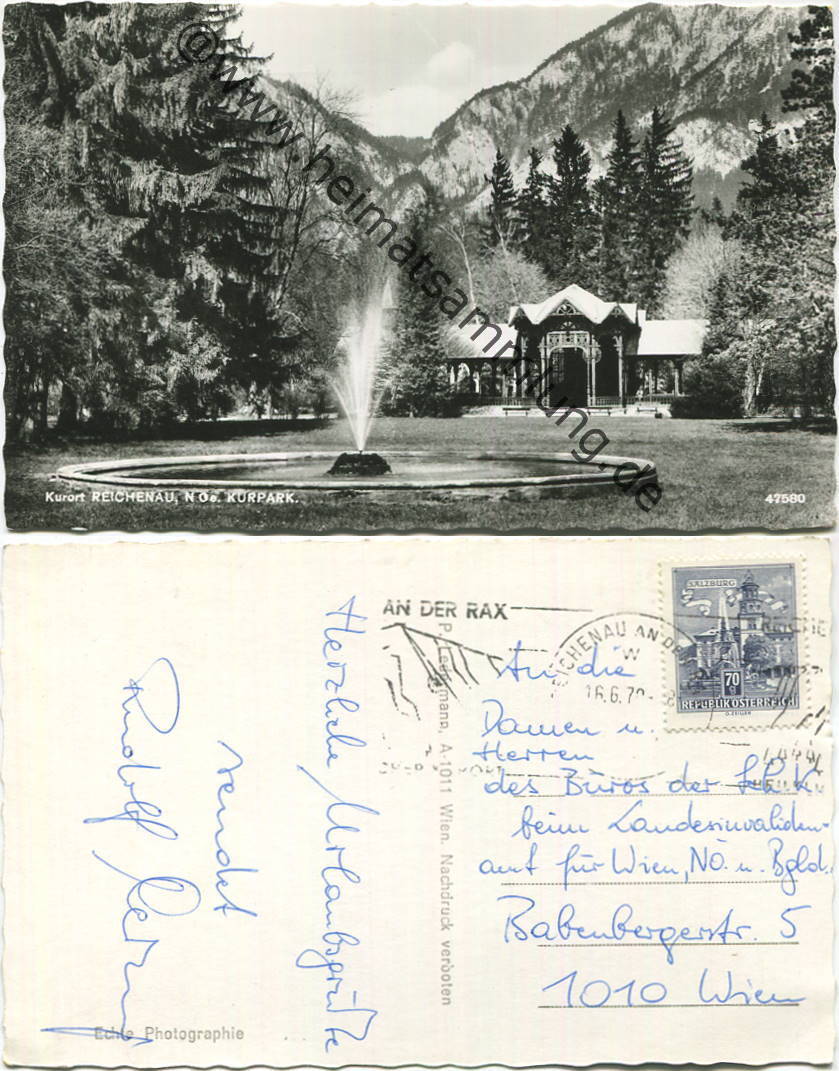 @www.heimatsammlung.de
Kurort REICHENAU, N Oe. KURPARK.
47580
Herzliche Urlaubsgrüße
sendet
Rudolf
Echte Photographie
P. Ledermann, A-1011 Wien. Nachdruck verboten
AN DER RAX
REICHENAU AN DE
W
16.6.7
SALZBURG
70 g
REPUBLIK ÖSTERREICH
An die
Damen u.
Herren
des Büros der
beim Landesinvaliden-
amt für Wien, NÖ. u. Bgld.
Babenbergerstr. 5
1010 Wien